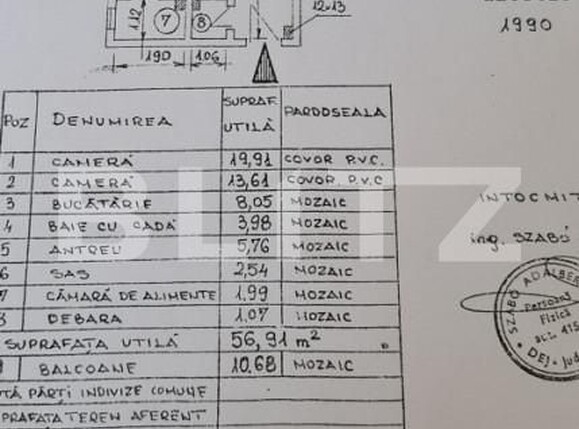 1.12
7
8
190
1.06
12.13
1990
POZ DENUMIREA SUPRAF. UTILĂ PARDOSEALA
1 CAMERĂ 19,91 COVOR P.V.C.
2 CAMERĂ 13,61 COVOR. P.V.C
3 BUCĂTĂRIE 8,05 MOZAIC
4 BAIE CU CADĂ 3,98 MOZAIC
5 ANTREU 5,76 MOZAIC
6 SAS 2,54 MOZAIC
7 CĂMARĂ DE ALIMENTE 1.99 MOZAIC
8 DEBARA 1.07 MOZAIC
SUPRAFAȚA UTILĂ 56,91 m²
BALCOANE 10.68 MOZAIC
TĂ PĂRȚI INDIVIZE COMUNE
PRAFATA TEREN AFERENT
BLITZ
INTOCMIT
ing. SZABÓ
SZABÓ ADALBE
Persoană
Fizică
aut. 415
DEJ - Jud